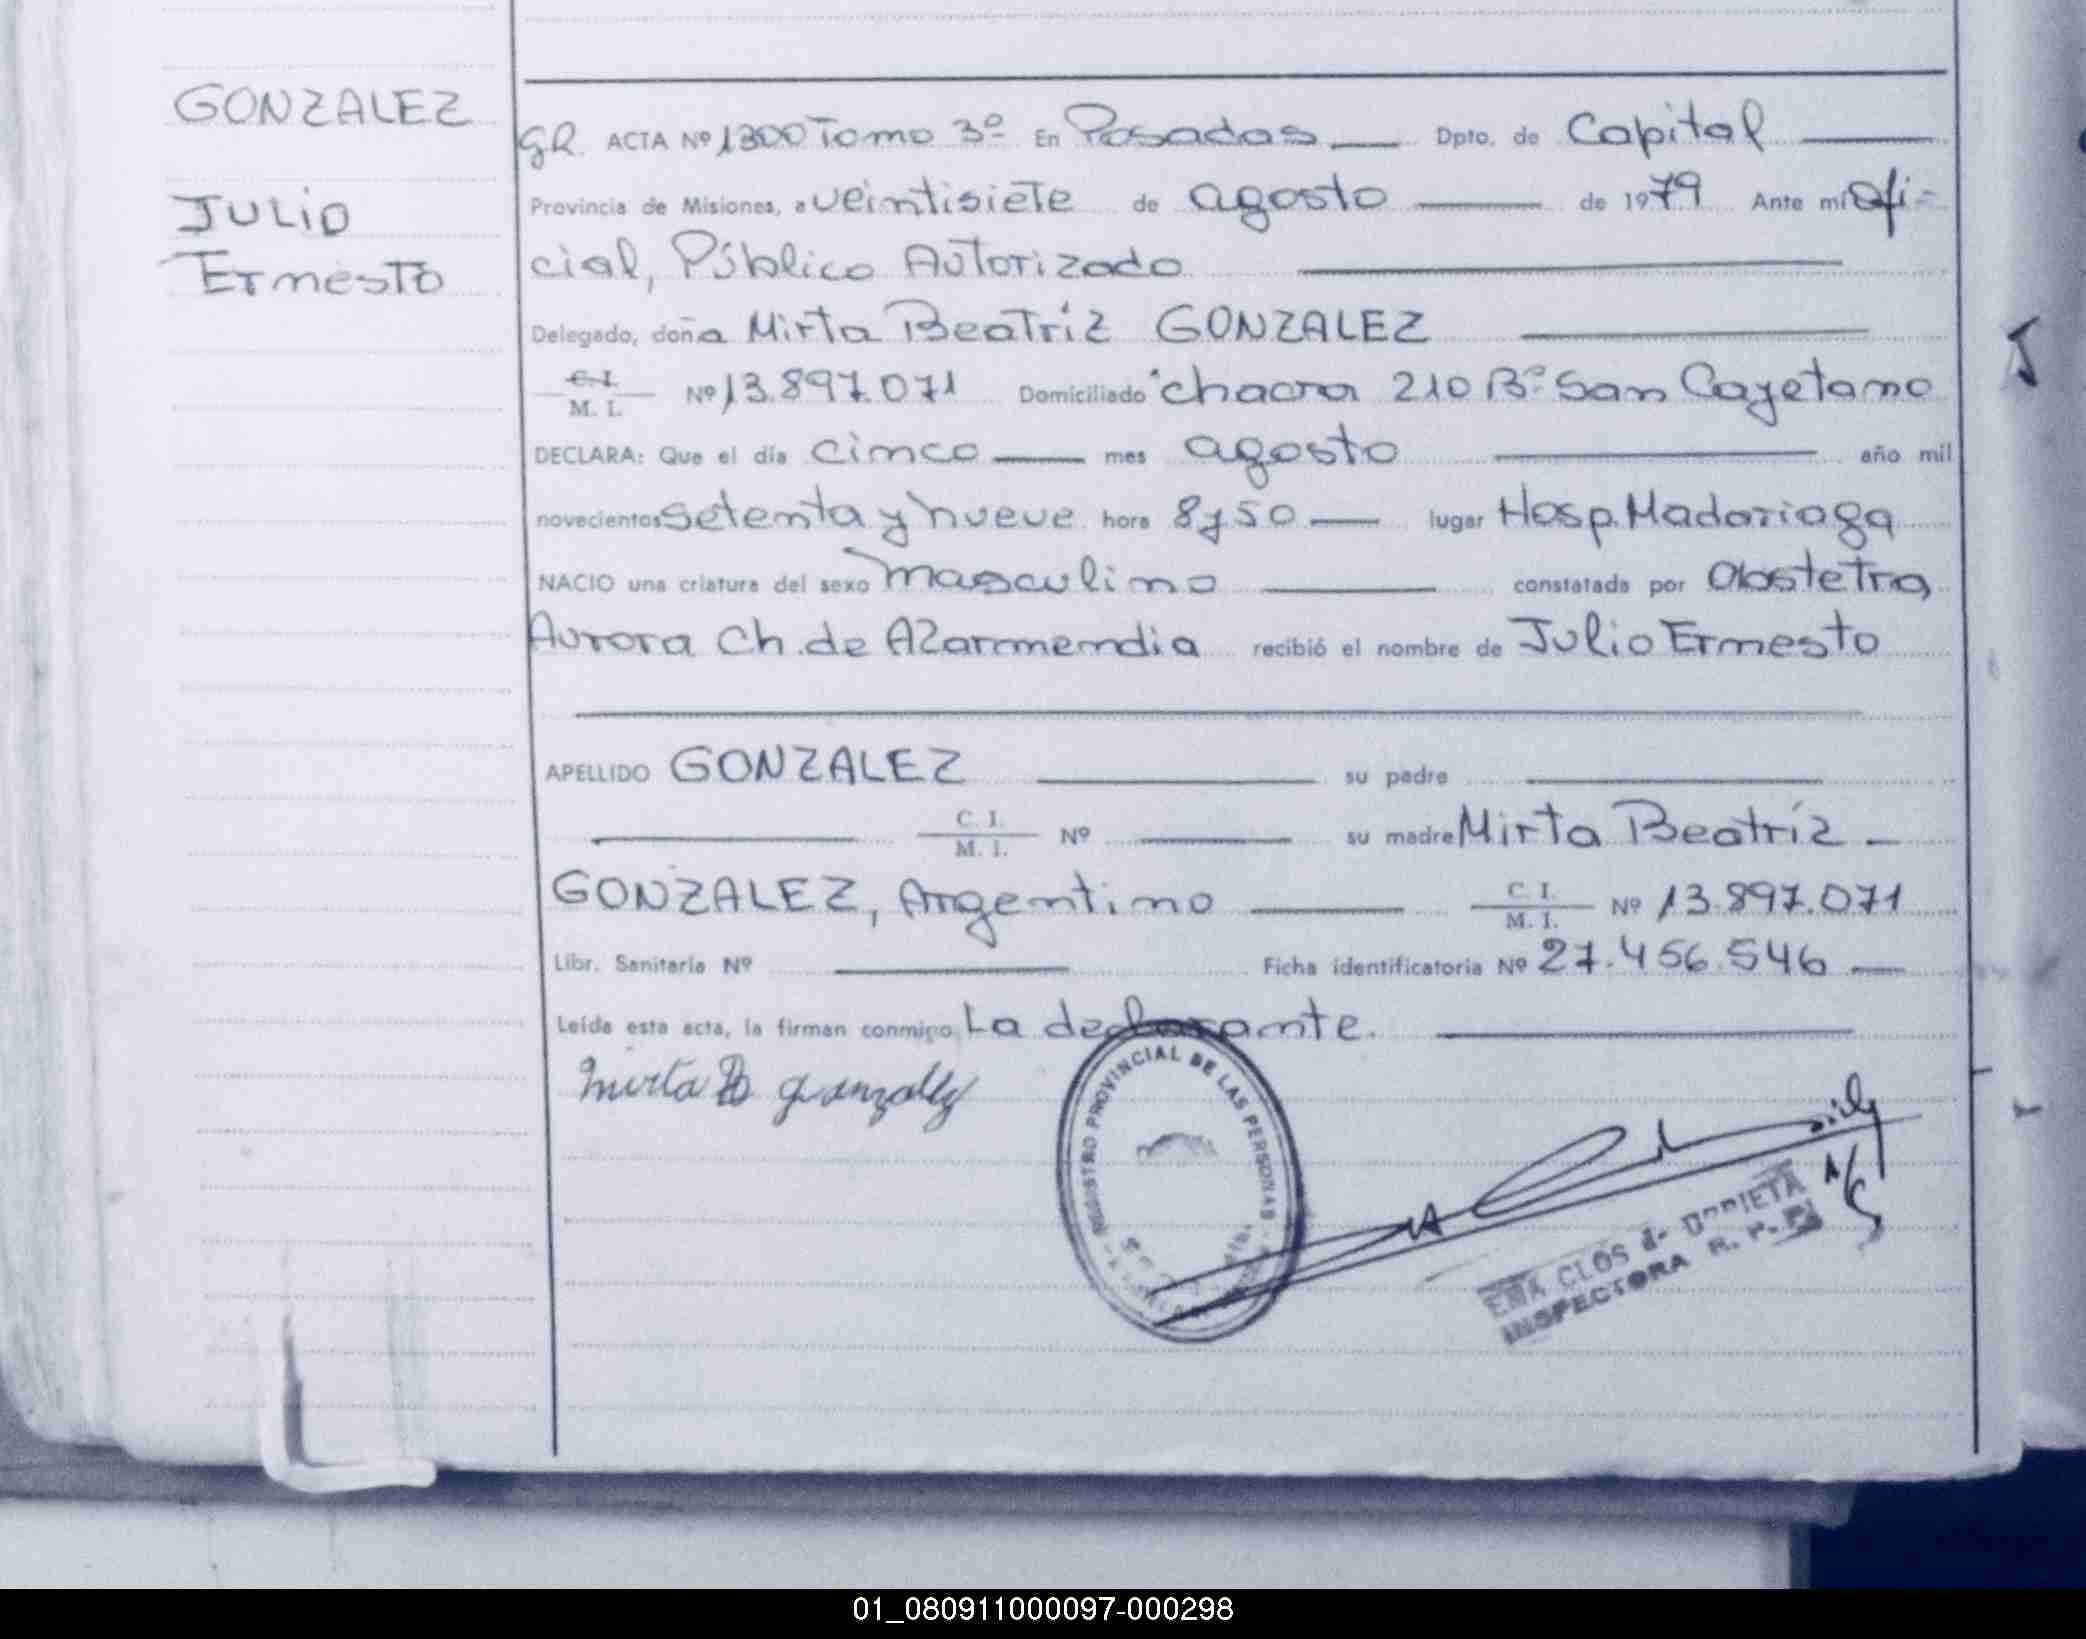 GONZALEZ
JULIO
Ernesto
GR. ACTA Nº 1300 Tomo 3º En Posadas Dpto. de Capital
Provincia de Misiones, a veintisiete de agosto de 1979 Ante mí Ofi-
cial, Público Autorizado
Delegado, doña Mirta Beatríz GONZALEZ
C. I.
M. I. Nº 13.897.071 Domiciliado chacra 210 Bº San Cayetano
DECLARA: Que el día cinco mes agosto año mil
novecientos setenta y nueve hora 8 y 50 lugar Hosp. Madariaga
NACIO una criatura del sexo masculino constatada por Obstetra
Aurora Ch. de Azarmendia recibió el nombre de Julio Ernesto
APELLIDO GONZALEZ su padre
C. I.
M. I. Nº su madre Mirta Beatríz
GONZALEZ, Argentino C. I.
M. I. Nº 13.897.071
Libr. Sanitaria Nº Ficha identificatoria Nº 27.456.546
Leída esta acta, la firman conmigo La declarante.
Mirta B gonzalez
REGISTRO PROVINCIAL DE LAS PERSONAS
CLOS de
INSPECTORA R. P.
01_080911000097-000298